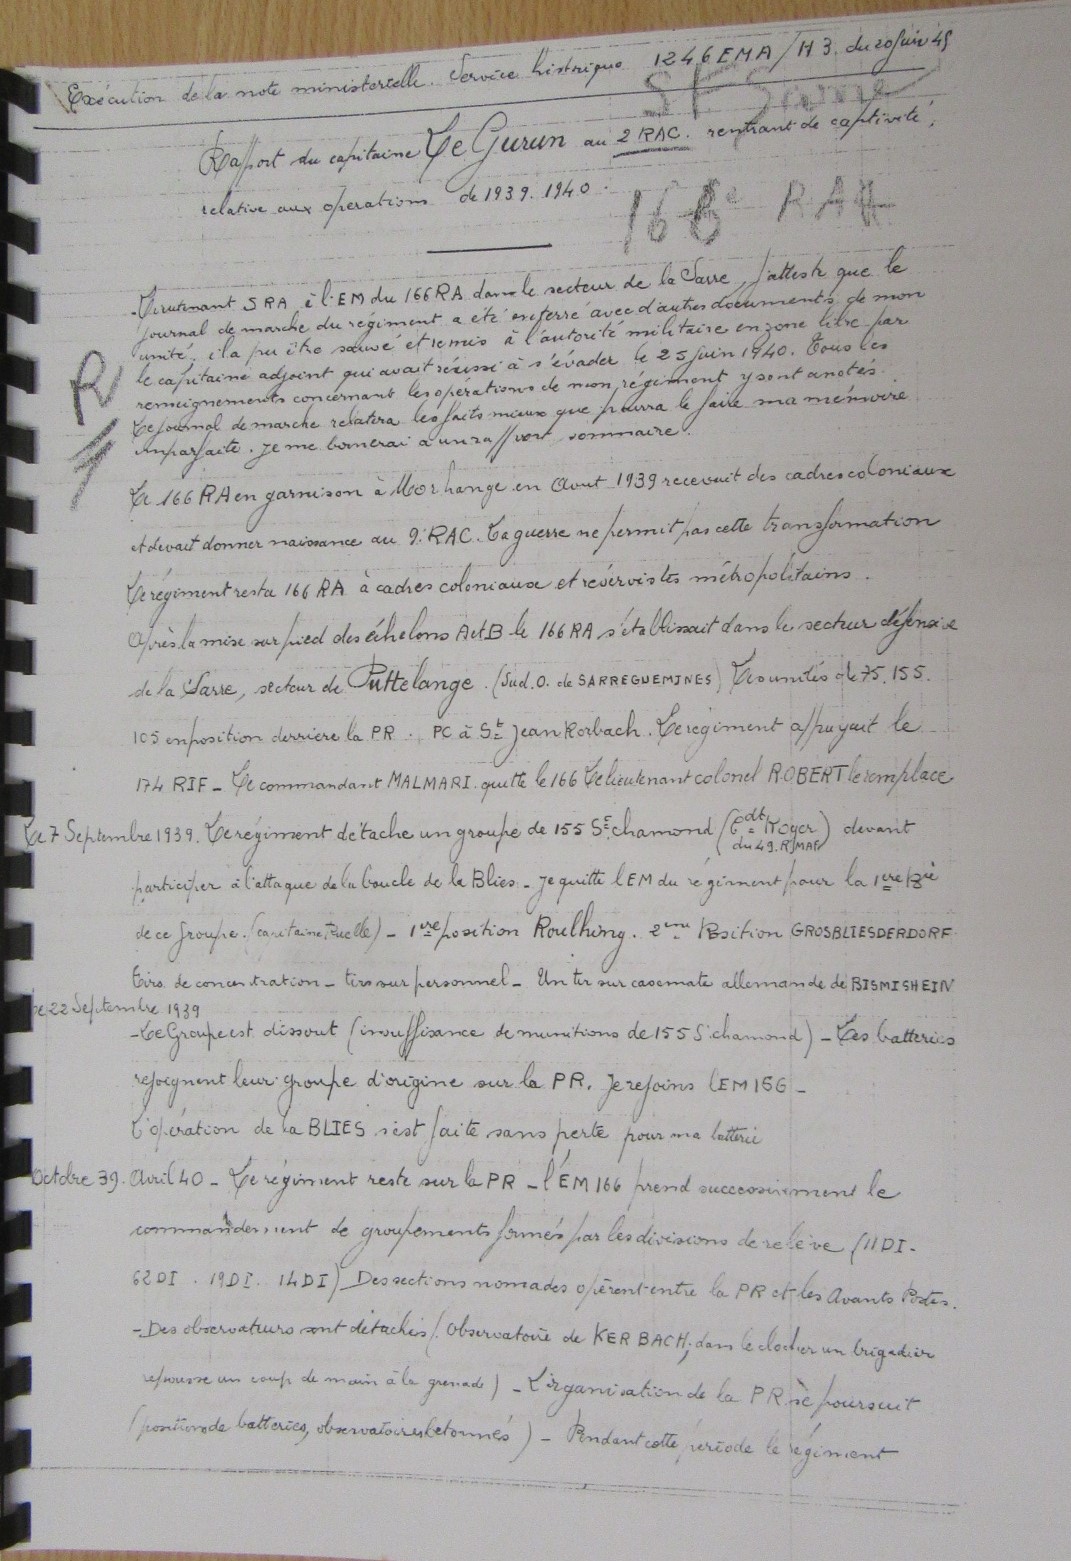 Exécution de la note ministerielle. Service historique 1246 EMA / H 3. du 20 Juin 45
SF Sarre
Rapport du capitaine Le Gurun au 2 RAC. rentrant de captivité,
relative aux operations de 1939. 1940.
166e RAF
- Lieutenant SRA à l'EM du 166 RA dans le secteur de la Sarre, j'atteste que le
journal de marche du régiment a été enterré avec d'autres documents, de mon
unité. il a pu être sauvé et remis à l'autorité militaire en zone libre par
le capitaine adjoint qui avait réussi à s'évader le 25 juin 1940. Tous les
renseignements concernant les opérations de mon régiment y sont anotés.
Le journal de marche relatera les faits mieux que pourra le faire ma mémoire
imparfaite. Je me bornerai à un rapport sommaire.
R
Le 166 RA en garnison à Morhange en Aout 1939 recevait des cadres coloniaux
et devait donner naissance au 9e RAC. La guerre ne permit pas cette transformation
Le régiment resta 166 RA à cadres coloniaux et réservistes métropolitains.
Après la mise sur pied des échelons A et B le 166 RA s'établissait dans le secteur défensive
de la Sarre, secteur de Puttelange. (Sud. O. de SARREGUEMINES) Les unités de 75. 155.
105 en position derriere la PR. PC à St Jean Rorbach. Le régiment appuyait le
174 RIF - Le commandant MALMARI quitte le 166 Le lieutenant colonel ROBERT le remplace
Le 7 Septembre 1939. Le régiment détache un groupe de 155 St chamond (Cdt Royer du 49. RMAF) devant
participer à l'attaque de la boucle de la Blies - Je quitte l'EM du régiment pour la 1ere Bie
de ce groupe. (capitaine Ruelle) - 1ere position Roulhing. 2eme Position GROSBLIESDERDORF
Tirs de concentration - tirs sur personnel - Un tir sur casemate allemande de BISMISHEIN
Le 22 Septembre 1939
- Le Groupe est dissout (insuffisance de munitions de 155 S chamond) - Les batteries
rejoignent leur groupe d'origine sur la PR. Je rejoins l'EM 166 -
L'opération de la BLIES s'est faite sans perte pour ma batterie
Octobre 39. Avril 40 - Le régiment reste sur la PR - l'EM 166 prend successivement le
commandement de groupements formés par les divisions de relève (11 DI -
62 DI. 19 DI. 14 DI) Des sections nomades opèrent entre la PR et les Avants Postes.
- Des observateurs sont détachés (Observatoire de KERBACH, dans le clocher un brigadier
repousse un coup de main à la grenade) - L'organisation de la PR se poursuit
(positions de batteries, observatoires betonnés) - Pendant cette période le régiment